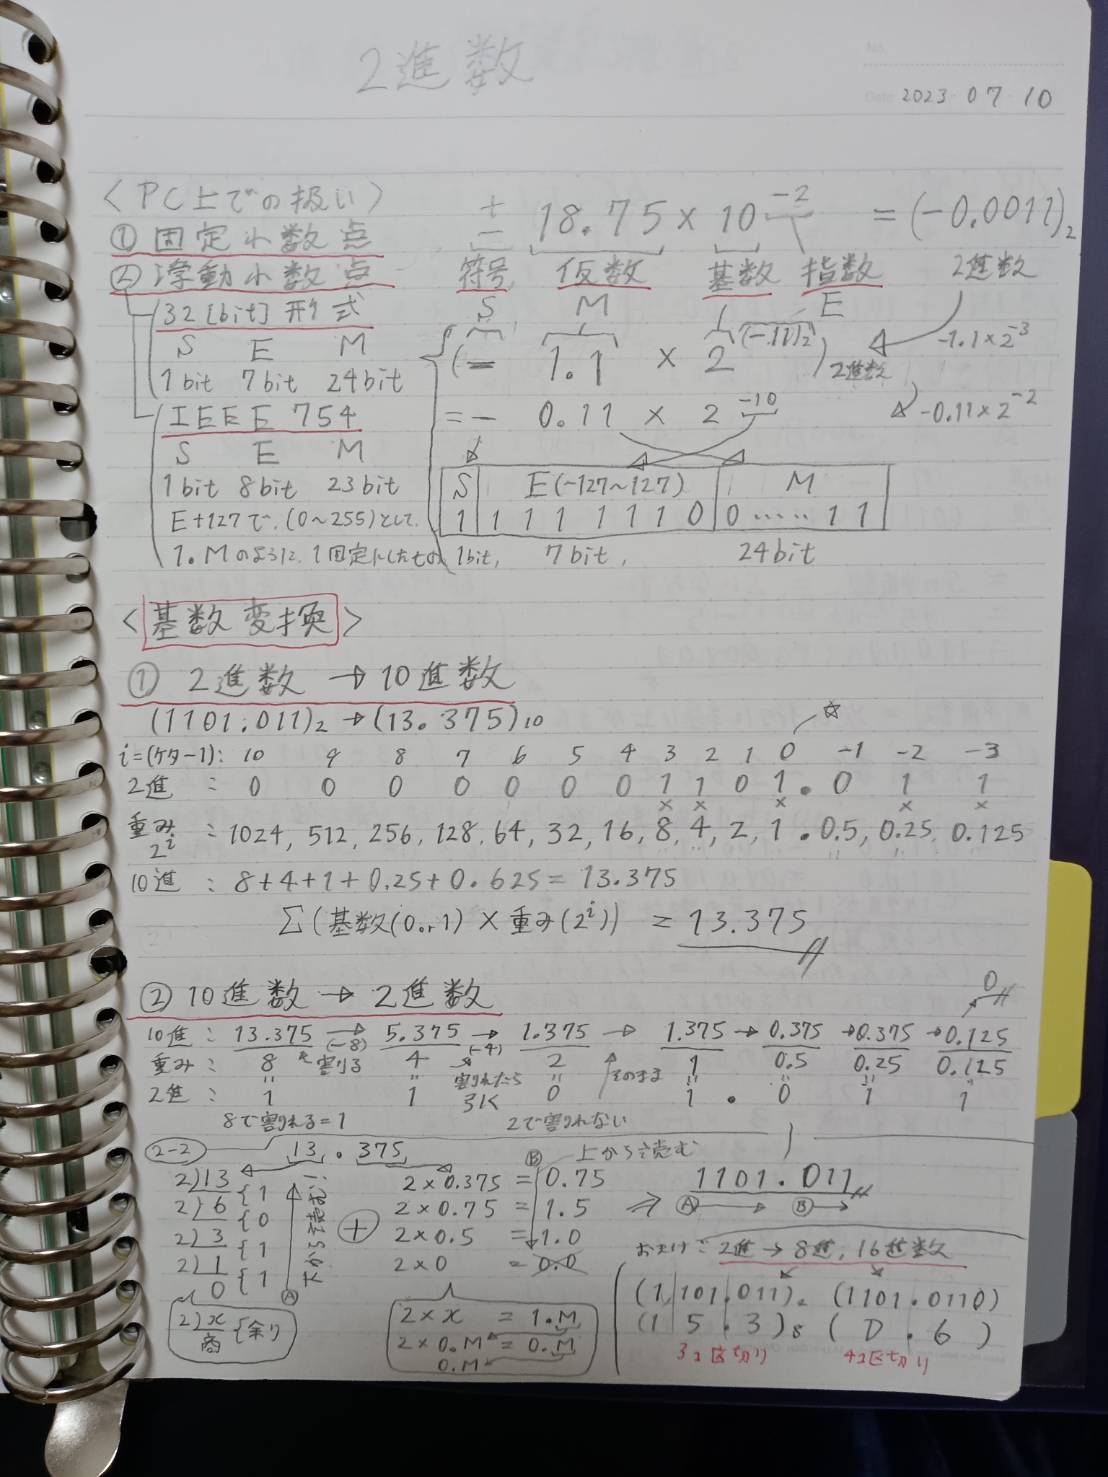 2進数
2023 07 10
〈PC上での扱い〉
① 固定小数点
② 浮動小数点
32[bit]形式
S E M
1bit 7bit 24bit
IEEE 754
S E M
1bit 8bit 23bit
E+127で、(0~255)として、
1.Mのように、1固定にしたもの
± 18.75 × 10 -2 = (-0.0011)2
符号 仮数 基数 指数 2進数
S M E
(- 1.1 × 2 (-11)2 ) 2進数 -1.1×2-3
= - 0.11 × 2 -10 -0.11×2-2
S E(-127~127) M
1 1 1 1 1 1 1 0 0 ..... 1 1
1bit, 7bit, 24bit
〈基数変換〉
① 2進数 → 10進数
(1101.011)2 → (13.375)10
i=(ケタ-1): 10 9 8 7 6 5 4 3 2 1 0 -1 -2 -3 ☆
2進 : 0 0 0 0 0 0 0 1 1 0 1 . 0 1 1
重み 2i : 1024, 512, 256, 128, 64, 32, 16, 8, 4, 2, 1 . 0.5, 0.25, 0.125
10進 : 8+4+1+0.25+0.625= 13.375
Σ(基数(0or1) × 重み(2i)) = 13.375
② 10進数 → 2進数
0
10進 : 13.375 → 5.375 → 1.375 → 1.375 → 0.375 → 0.375 → 0.125
(-8) (-4)
重み : 8 割りる 4 2 1 0.5 0.25 0.125
割れたら引く そのまま
2進 : 1 1 0 1 . 0 1 1
8で割れる=1 2で割れない
2-2 13 . 375 Ⓑ 上から読む
2)13 {1
2)6 {0
2)3 {1
2)1 {1
0
下から読む! Ⓐ
+
2×0.375 = 0.75
2×0.75 = 1.5
2×0.5 = 1.0
2×0 = 0.0
⇒ 1101.011
Ⓐ→ Ⓑ→
2)x {余り
商
2×x = 1.M
2×0.M = 0.M
0.M
おまけ: 2進→8進, 16進数
(1,101.011)2 (1101.0110)
(1 5 . 3)8 ( D . 6 )
3コ区切り 4コ区切り